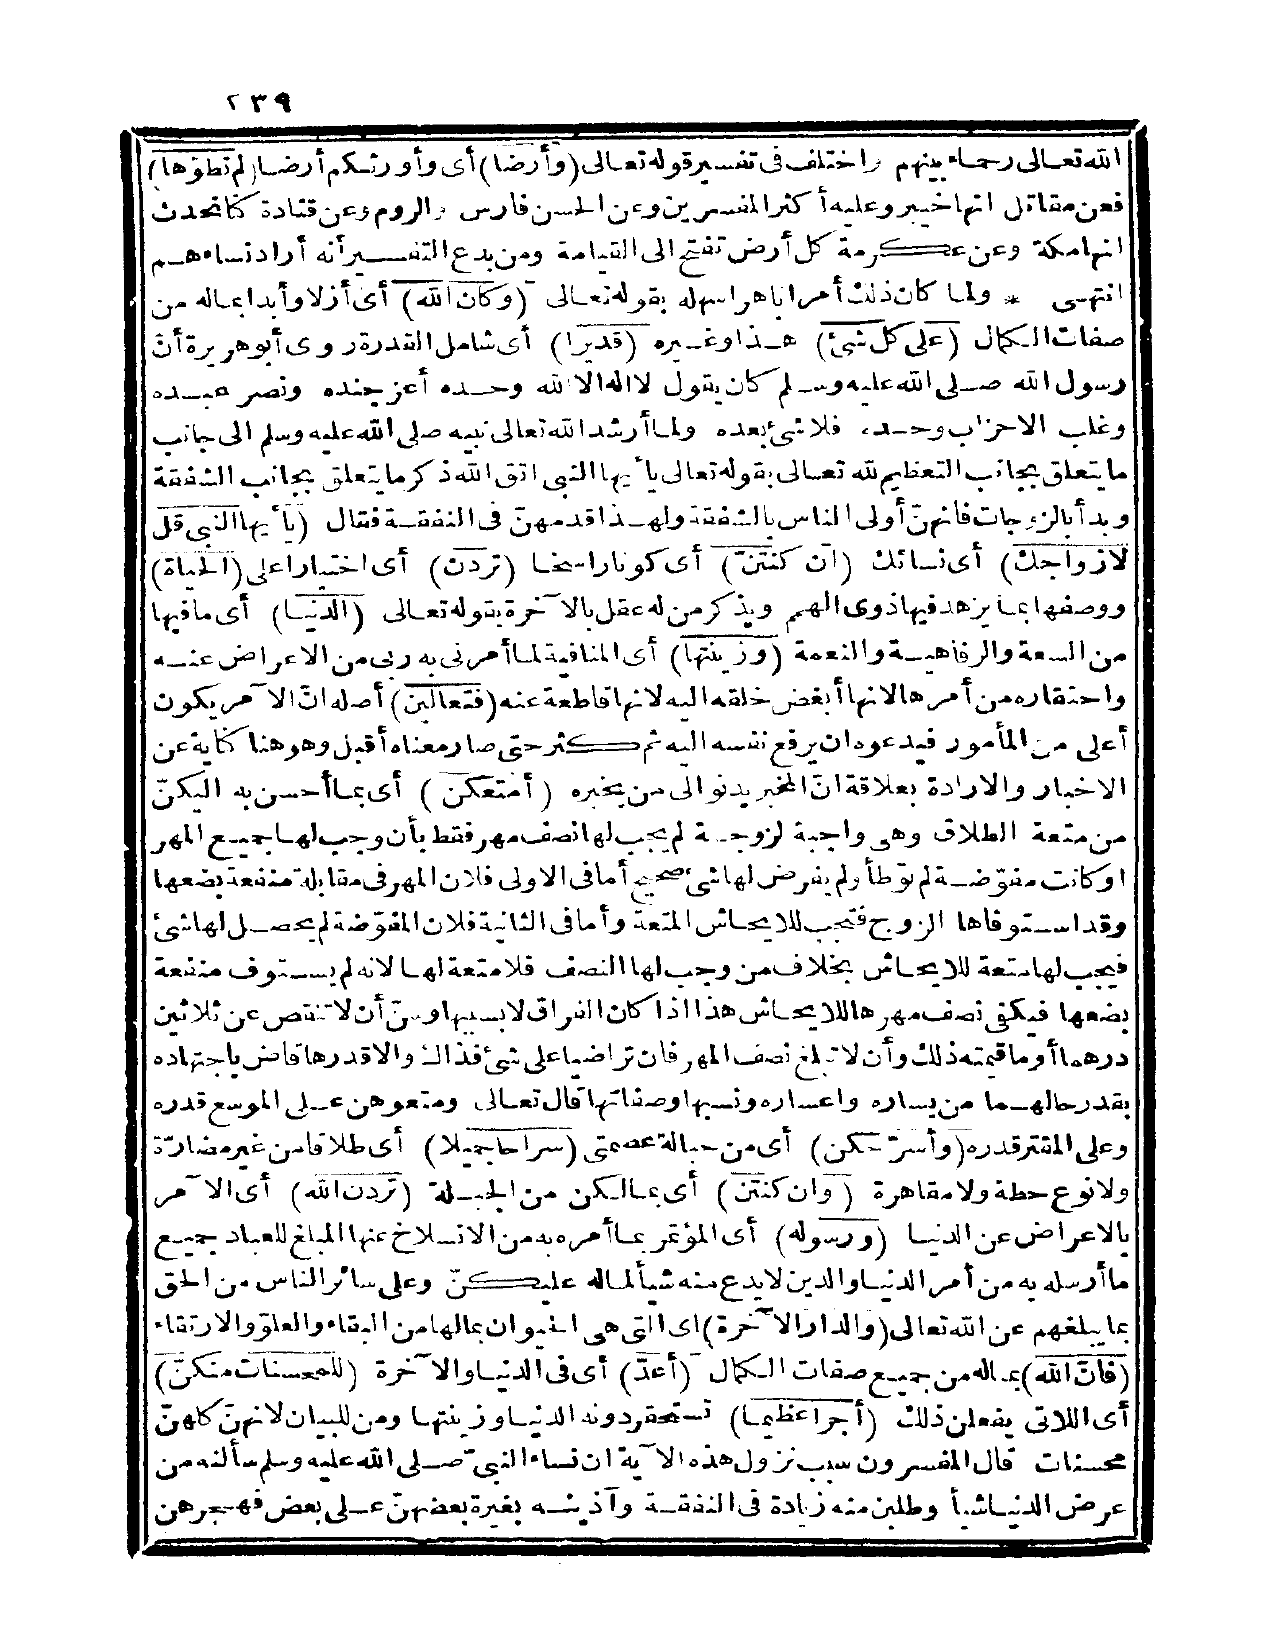 ٢٣٩
الله تعالى رحماء بينهم واختلف فى تفسير قوله تعالى (وأرضا) أى وأورثكم أرضا (لم تطؤها)
فعن مقاتل انها خيبر وعليه أكثر المفسرين وعن الحسن فارس والروم وعن قتادة كنا نحدث
انها مكة وعن عكرمة كل أرض تفتح الى القيامة ومن بدع التفسير أنه أراد نساءهم
انتهى * ولما كان ذلك أمرا باهرا سهله بقوله تعالى (وكان الله) أى أزلا وأبدا بماله من
صفات الكمال (على كل شئ) هذا وغيره (قديرا) أى شامل القدرة روى أبو هريرة أنّ
رسول الله صلى الله عليه وسلم كان يقول لا اله الا الله وحده أعز جنده ونصر عبده
وغلب الاحزاب وحده فلا شئ بعده ولما أرشد الله تعالى نبيه صلى الله عليه وسلم الى جانب
ما يتعلق بجانب التعظيم لله تعالى بقوله تعالى يا أيها النبى اتق الله ذكر ما يتعلق بجانب الشفقة
وبدأ بالزوجات فانهنّ أولى الناس بالشفقة ولهذا قدمهنّ فى النفقة فقال (يا أيها النبى قل
لازواجك) أى نسائك (ان كنتنّ) أى كونا راسخا (تردن) أى اختيارا على (الحياة)
ووصفها بما يزهد فيها ذوى الهمم ويذكر من له عقل بالآخرة بقوله تعالى (الدنيا) أى ما فيها
من السعة والرفاهية والنعمة (وزينتها) أى المنافية لما أمرنى به ربى من الاعراض عنه
واحتقاره من أمرها لانها أبغض خلقه اليه لانها قاطعة عنه (فتعالين) أصله انّ الآمر يكون
أعلى من المأمور فيدعوه ان يرفع نفسه اليه ثم كثر حتى صار معناه أقبل وهو هنا كناية عن
الاخبار والارادة بعلاقة انّ المخبر يدنو الى من يخبره (أمتعكن) أى بما أحسن به اليكنّ
من متعة الطلاق وهى واجبة لزوجة لم يجب لها نصف مهر فقط بأن وجب لها جميع المهر
او كانت مفوّضة لم توطأ ولم يفرض لها شئ صحيح أما فى الاولى فلان المهر فى مقابلة منفعة بضعها
وقد استوفاها الزوج فتجب للايحاش المتعة وأما فى الثانية فلان المفوّضة لم يحصل لها شئ
فيجب لها متعة للايحاش بخلاف من وجب لها النصف فلا متعة لها لانه لم يستوف منفعة
بضعها فيكفى نصف مهرها للايحاش هذا اذا كان الفراق لا بسببها وسنّ أن لا تنقص عن ثلاثين
درهما أو ما قيمته ذلك وأن لا تبلغ نصف المهر فان تراضيا على شئ فذاك والا قدرها قاض باجتهاده
بقدر حالهما من يساره واعساره ونسبها وصفاتها قال تعالى ومتعوهن على الموسع قدره
وعلى المقتر قدره (وأسرّحكن) أى من حبالة عصمتى (سراحا جميلا) أى طلاقا من غير مضارّة
ولا نوع حطة ولا مقاهرة (وان كنتنّ) أى بما لكن من الجبلة (تردن الله) أى الآمر
بالاعراض عن الدنيا (ورسوله) أى المؤتمر بما أمره به من الانسلاخ عنها المبلغ للعباد جميع
ما أرسله به من أمر الدنيا والدين لا يدع منه شيأ لماله عليكنّ وعلى سائر الناس من الحق
بما يبلغهم عن الله تعالى (والدار الآخرة) اى التى هى الحيوان بمالها من البقاء والعلوّ والارتقاء
(فانّ الله) بماله من جميع صفات الكمال (أعدّ) أى فى الدنيا والآخرة (للمحسنات منكنّ)
أى اللاتى يفعلن ذلك (أجرا عظيما) تستحقر دونه الدنيا وزينتها ومن للبيان لانهنّ كلهنّ
محسنات قال المفسرون سبب نزول هذه الآية ان نساء النبىّ صلى الله عليه وسلم سألنه من
عرض الدنيا شيأ وطلبن منه زيادة فى النفقة وآذينه بغيرة بعضهنّ على بعض فهجرهن